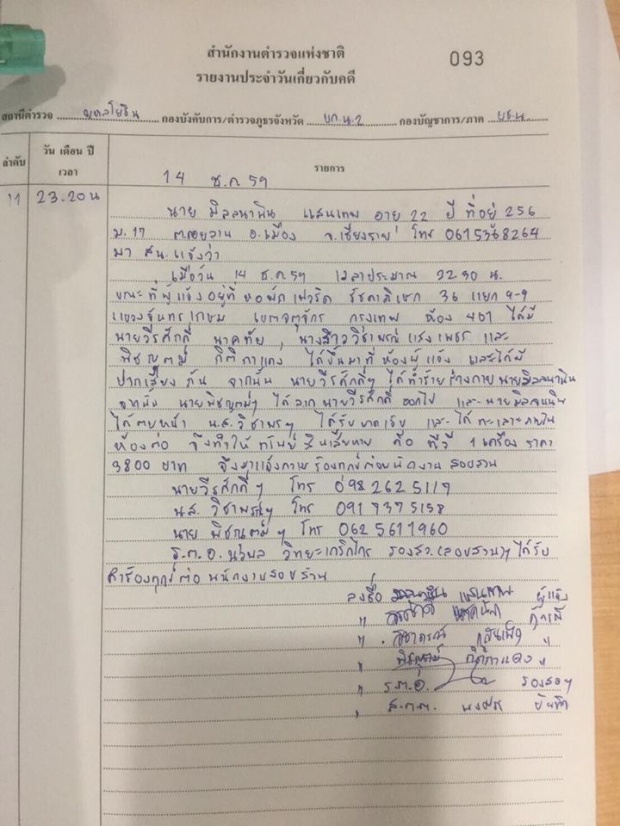 สำนักงานตำรวจแห่งชาติ
093
รายงานประจำวันเกี่ยวกับคดี
สถานีตำรวจ พหลโยธิน กองบังคับการ/ตำรวจภูธรจังหวัด บก.น.2 กองบัญชาการ/ภาค บช.น.
ลำดับ
วัน เดือน ปี
เวลา
รายการ
14 ธ.ค 59
11 23.20 น
นาย มิลลนานิน แสนเทพ อายุ 22 ปี ที่อยู่ 256
ม.17 อ.เมือง จ.เชียงราย โทร 0615368264
มา สน. แจ้งว่า
เมื่อวัน 14 ธ.ค 59 เวลาประมาณ 22.30 น.
ขณะที่ผู้แจ้งอยู่ที่ หอพัก รัชดาภิเษก 36 แยก 9-9
แขวงจันทรเกษม เขตจตุจักร กรุงเทพ ห้อง 401 ได้มี
นายวีรศักดิ์ นาคทัย , นางสาววิชาพรณ์ แสงเพชร และ
พิชญตม์ กิติกาแดง ได้ขึ้นมาที่ห้องผู้แจ้ง และได้มี
ปากเสียงกัน จากนั้น นายวีรศักดิ์ฯ ได้ทำร้ายร่างกาย นายมิลลนานิน
จากนั้น นายพิชญตม์ฯ ได้ลาก นายวีรศักดิ์ ออกไป และ นายมิลลนานิน
ได้ตบหน้า น.ส. วิชาพรฯ ได้รับบาดเจ็บ และได้ทะเลาะภายใน
ห้องต่อ จึงทำให้ทรัพย์สินเสียหาย คือ ทีวี 1 เครื่อง ราคา
3800 บาท จึงมาแจ้งความร้องทุกข์ต่อพนักงานสอบสวน
นายวีรศักดิ์ฯ โทร 098 262 5119
น.ส. วิชาพรณฯ โทร 091 7375158
นาย พิชญตม์ฯ โทร 062 5611960
ร.ต.อ. นวพล วิทยะเกริกไกร รองสว.(สอบสวน)ฯ ได้รับ
คำร้องทุกข์ต่อพนักงานสอบสวน
ลงชื่อ มิลลนานิน แสนเทพ ผู้แจ้ง
" วีรศักดิ์ คู่กรณี
" วิชาภรณ์ "
" พิชญตม์ กิติกาแดง "
" ร.ต.อ. รองสวฯ
" ส.ต.ต. บันทึก